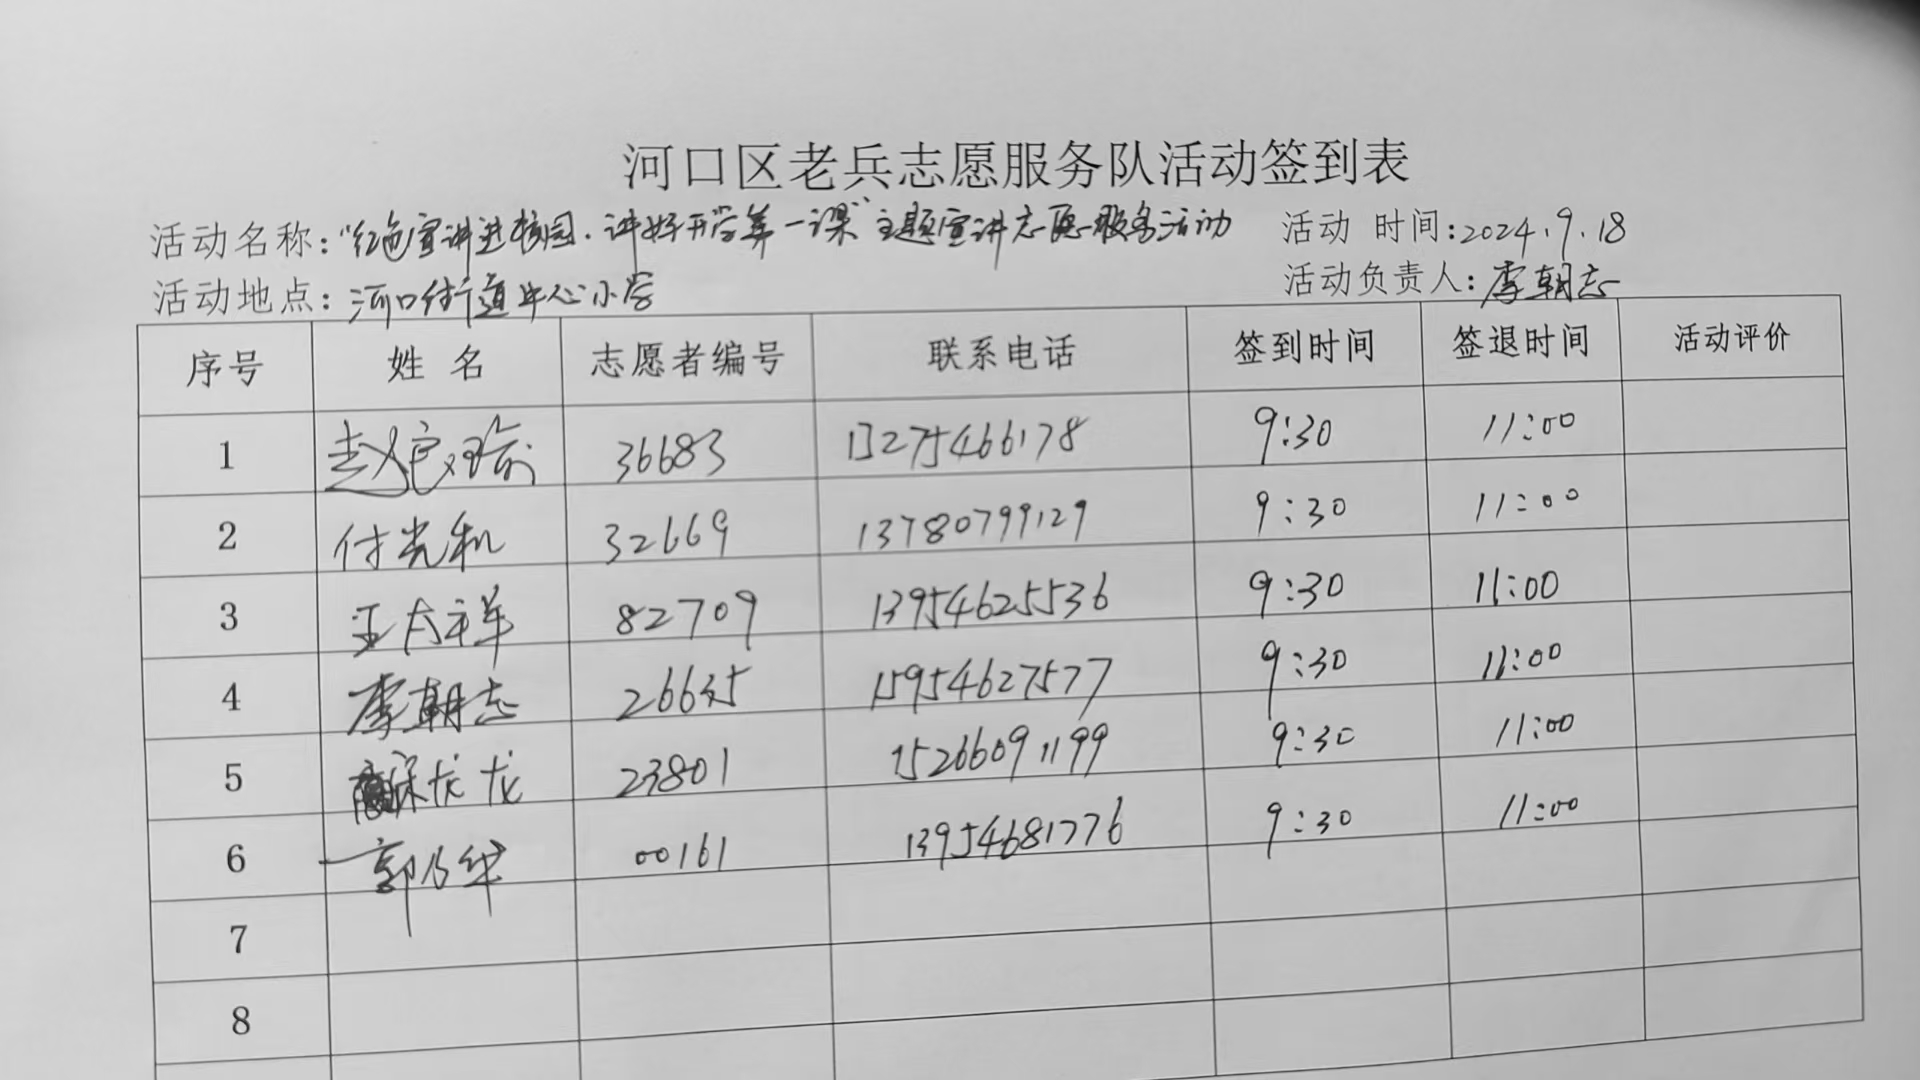 河口区老兵志愿服务队活动签到表
活动名称："红色宣讲进校园·讲好开学第一课"主题宣讲志愿服务活动 活动 时间:2024.9.18
活动地点：河口街道中心小学 活动负责人：李朝志
序号 姓 名 志愿者编号 联系电话 签到时间 签退时间 活动评价
1 36683 13275466178 9:30 11:00
2 付光利 32669 13780799129 9:30 11:00
3 王大祥 82709 13954625536 9:30 11:00
4 李朝志 26635 15954627577 9:30 11:00
5 23801 15266091199 9:30 11:00
6 郭乃华 00161 13954681776 9:30 11:00
7
8